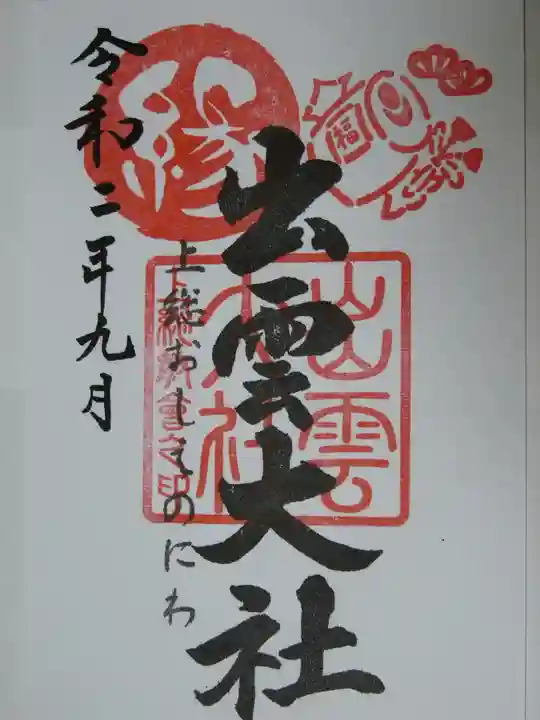 縁
福
出雲大社
出雲
大社
上総おもものにわ
令和二年九月